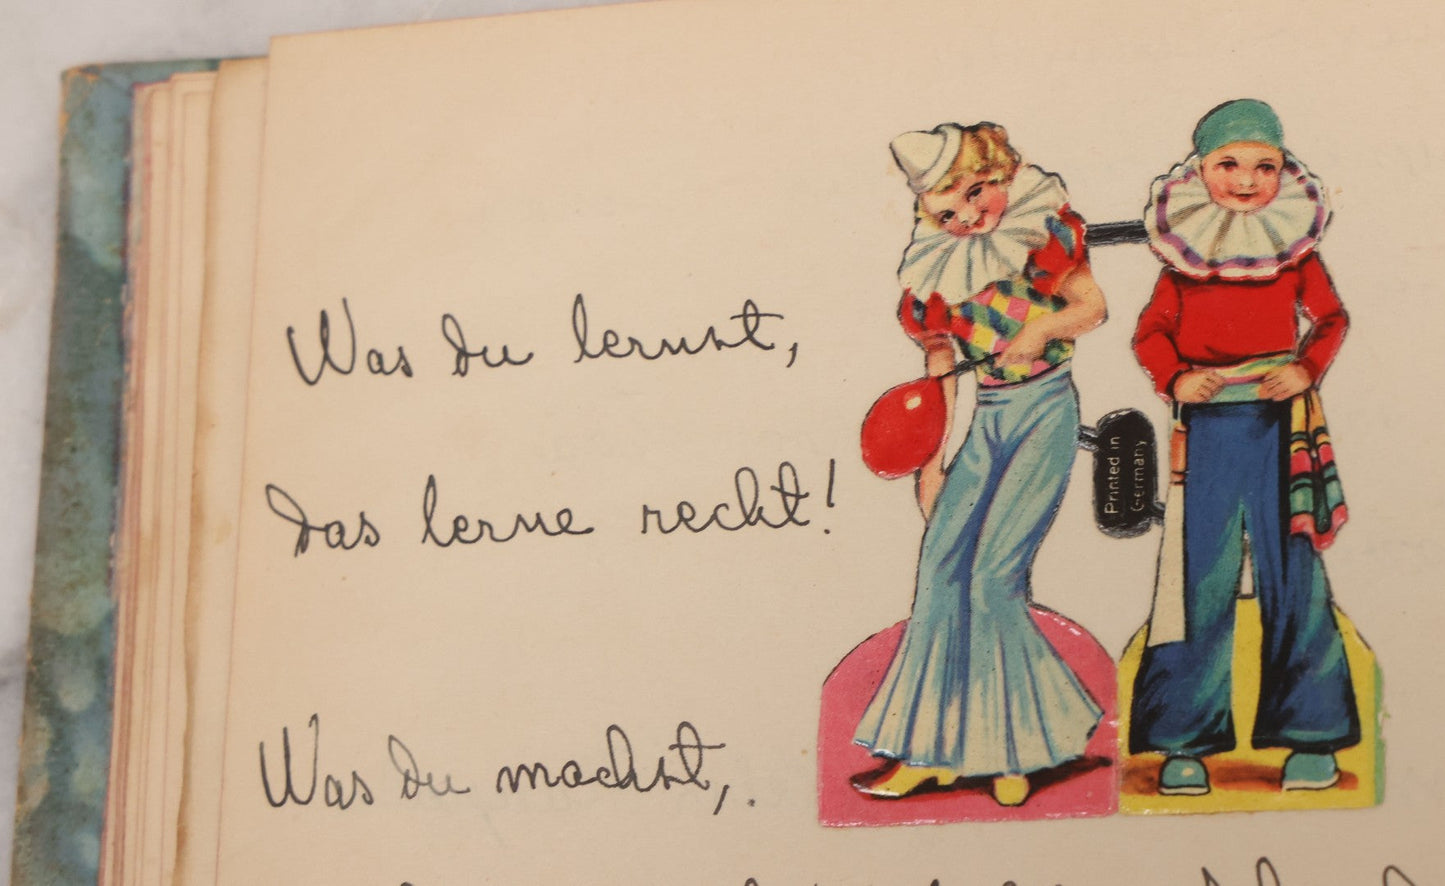 Was du lernst,
das lerne recht!
Was du machst,.
Printed in
Germany